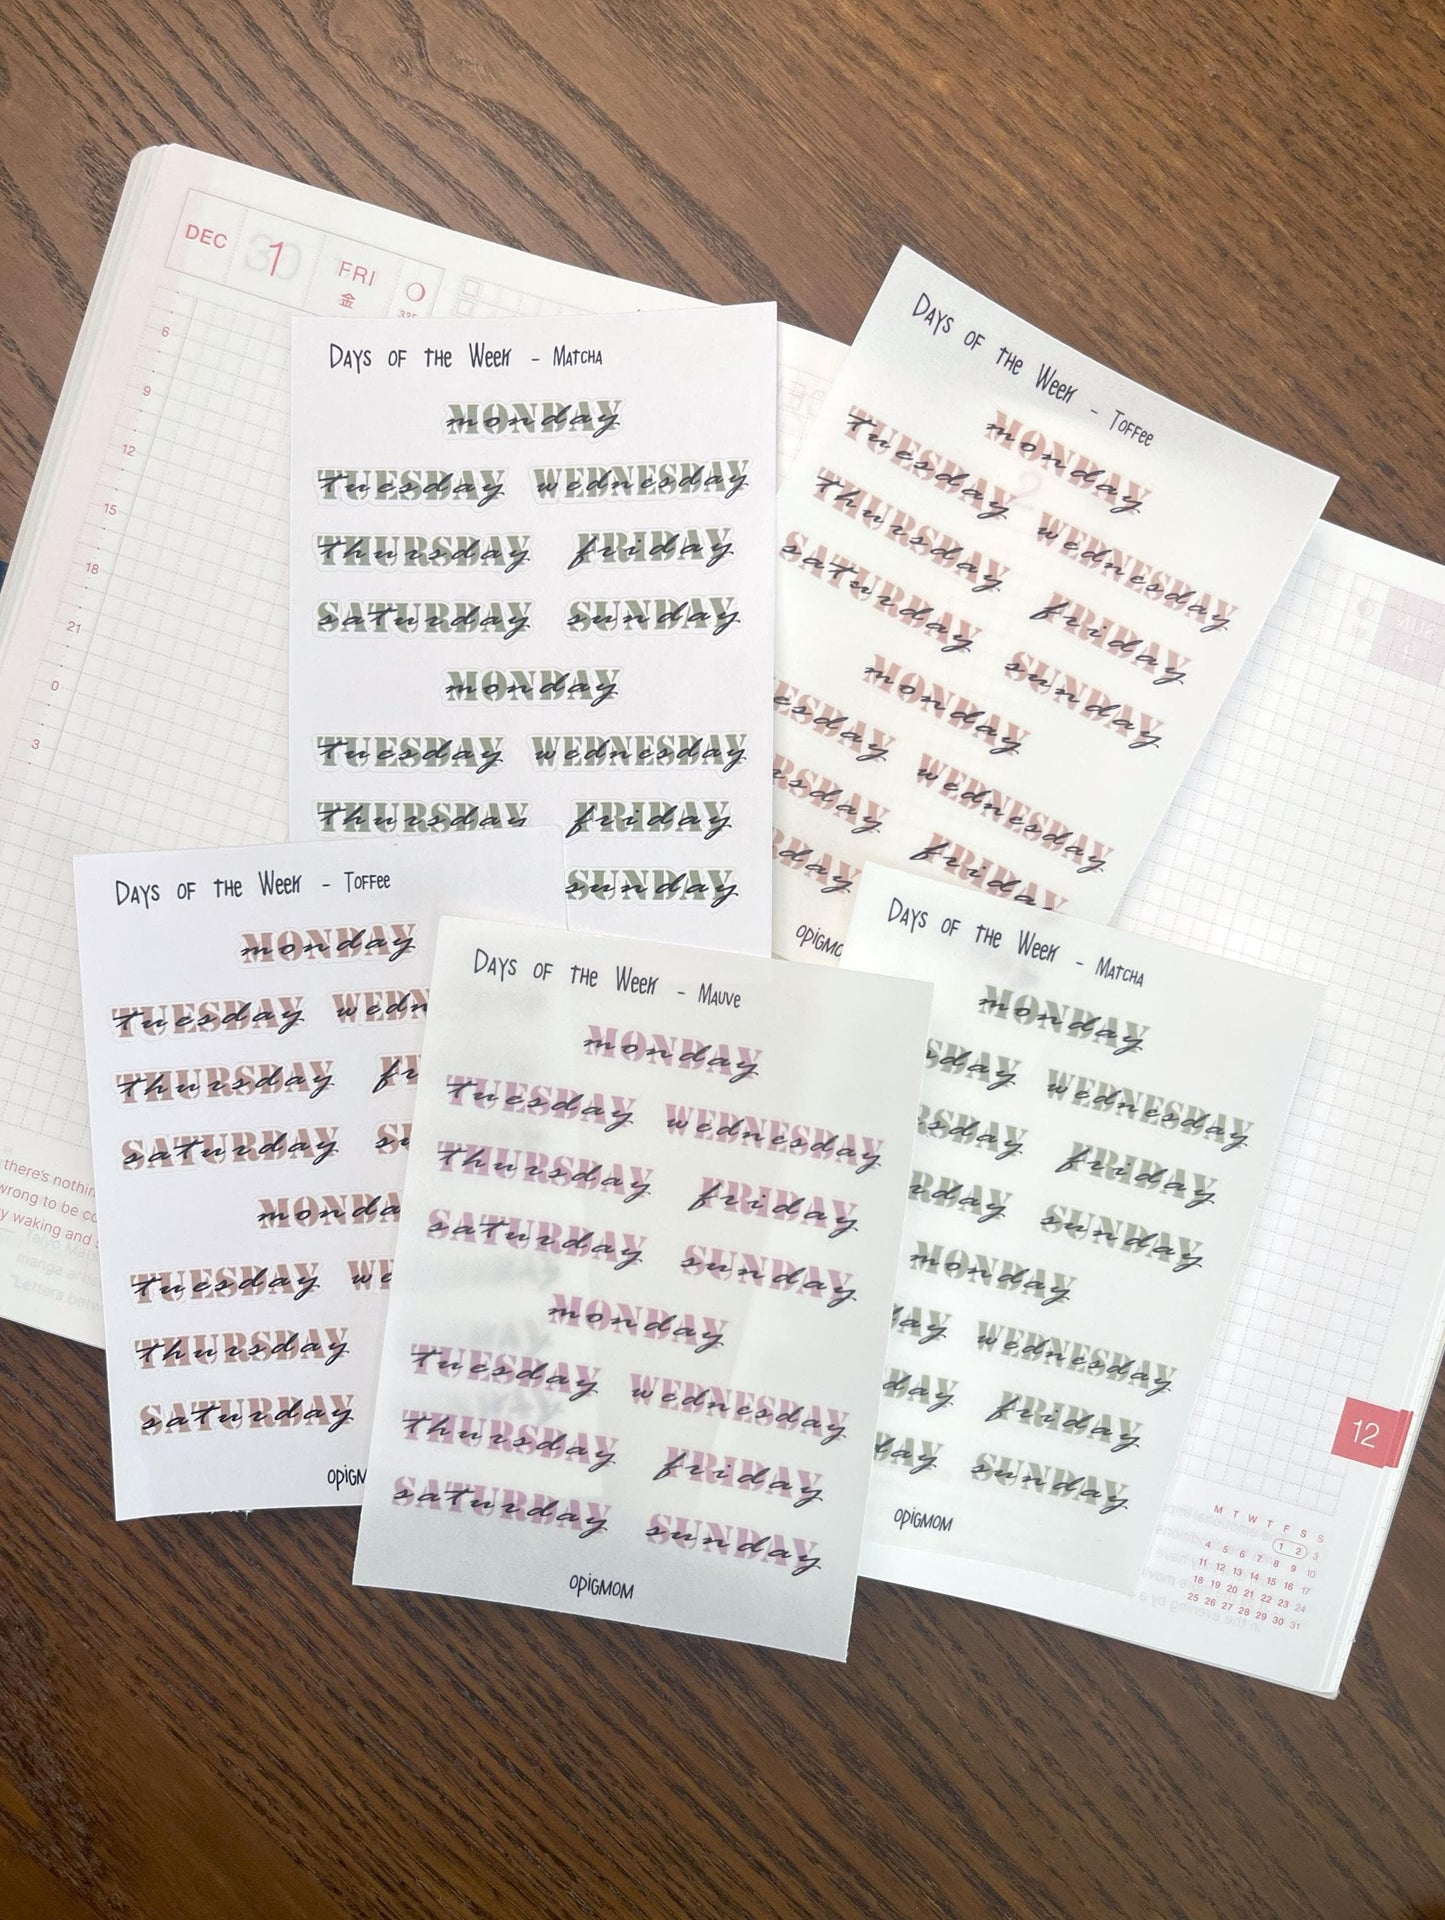 DEC 1 FRI
金
6
9
12
15
18
21
0
3
there's nothin
wrong to be co
y waking and s
Days of the Week - Matcha
MONDAY monday
TUESDAY tuesday WEDNESDAY wednesday
THURSDAY thursday FRIDAY friday
SATURDAY saturday SUNDAY sunday
MONDAY monday
TUESDAY tuesday WEDNESDAY wednesday
THURSDAY thursday FRIDAY friday
SUNDAY sunday
Days of the Week - Toffee
MONDAY monday
TUESDAY tuesday WEDNESDAY wednesday
THURSDAY thursday FRIDAY friday
SATURDAY saturday SUNDAY sunday
MONDAY monday
ESDAY esday WEDNESDAY wednesday
RSDAY rsday FRIDAY friday
RDAY rday
OPIGMO
Days of the Week - Toffee
MONDAY monday
TUESDAY tuesday WEDN wedn
THURSDAY thursday FR fr
SATURDAY saturday SU su
MONDA monda
TUESDAY tuesday WE we
THURSDAY thursday
SATURDAY saturday
OPIGM
Days of the Week - Mauve
MONDAY monday
TUESDAY tuesday WEDNESDAY wednesday
THURSDAY thursday FRIDAY friday
SATURDAY saturday SUNDAY sunday
MONDAY monday
TUESDAY tuesday WEDNESDAY wednesday
THURSDAY thursday FRIDAY friday
SATURDAY saturday SUNDAY sunday
OPIGMOM
Days of the Week - Matcha
MONDAY monday
SDAY sday WEDNESDAY wednesday
RSDAY rsday FRIDAY friday
RDAY rday SUNDAY sunday
MONDAY monday
DAY day WEDNESDAY wednesday
DAY day FRIDAY friday
DAY day SUNDAY sunday
OPIGMOM
12
M T W T F S S
1 2 3
4 5 6 7 8 9 10
11 12 13 14 15 16 17
18 19 20 21 22 23 24
25 26 27 28 29 30 31